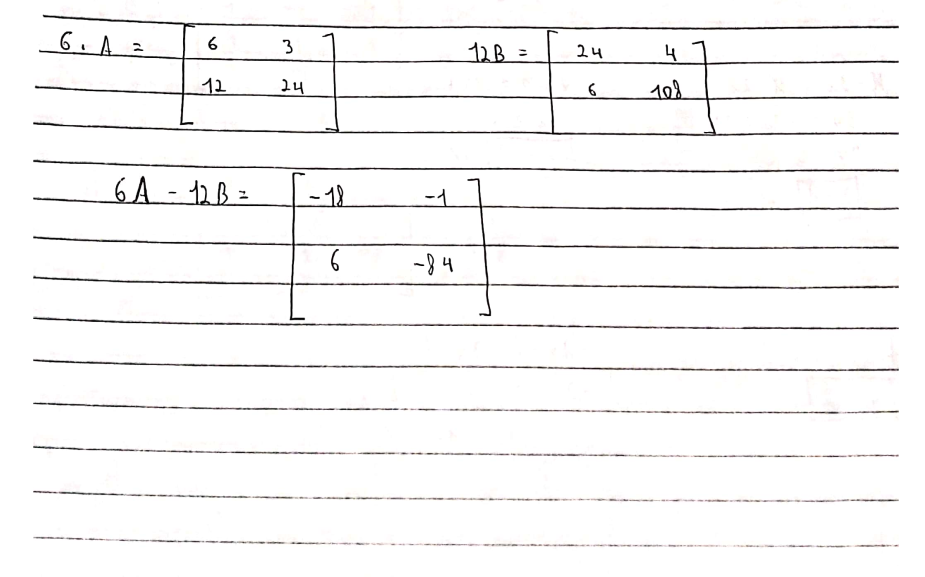 6. A = [ 6 3 ] 12B = [ 24 4 ]
12 24 6 108
6A - 12B = [ -18 -1 ]
6 -84